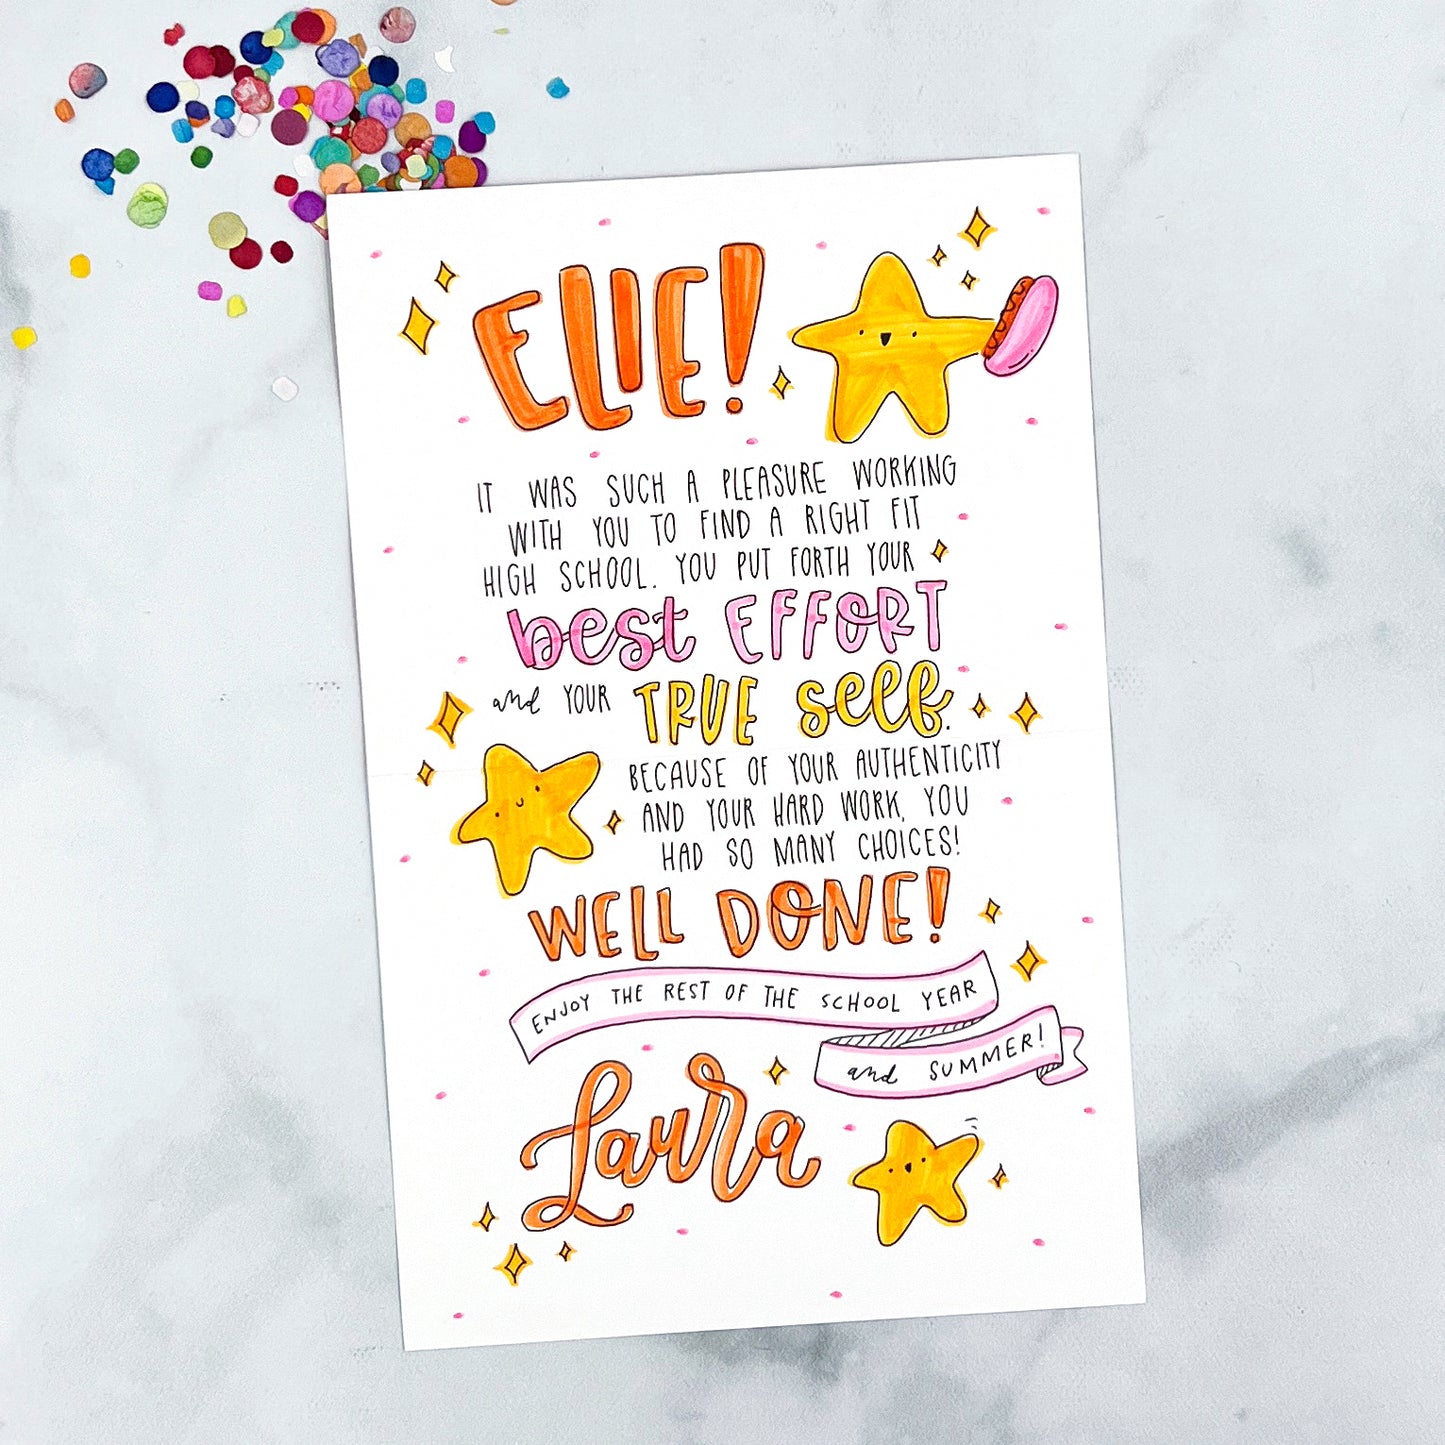 ELIE!
IT WAS SUCH A PLEASURE WORKING
WITH YOU TO FIND A RIGHT FIT
HIGH SCHOOL. YOU PUT FORTH YOUR
best EFFORT
and YOUR TRUE self.
BECAUSE OF YOUR AUTHENTICITY
AND YOUR HARD WORK, YOU
HAD SO MANY CHOICES!
WELL DONE!
ENJOY THE REST OF THE SCHOOL YEAR
and SUMMER!
Laura